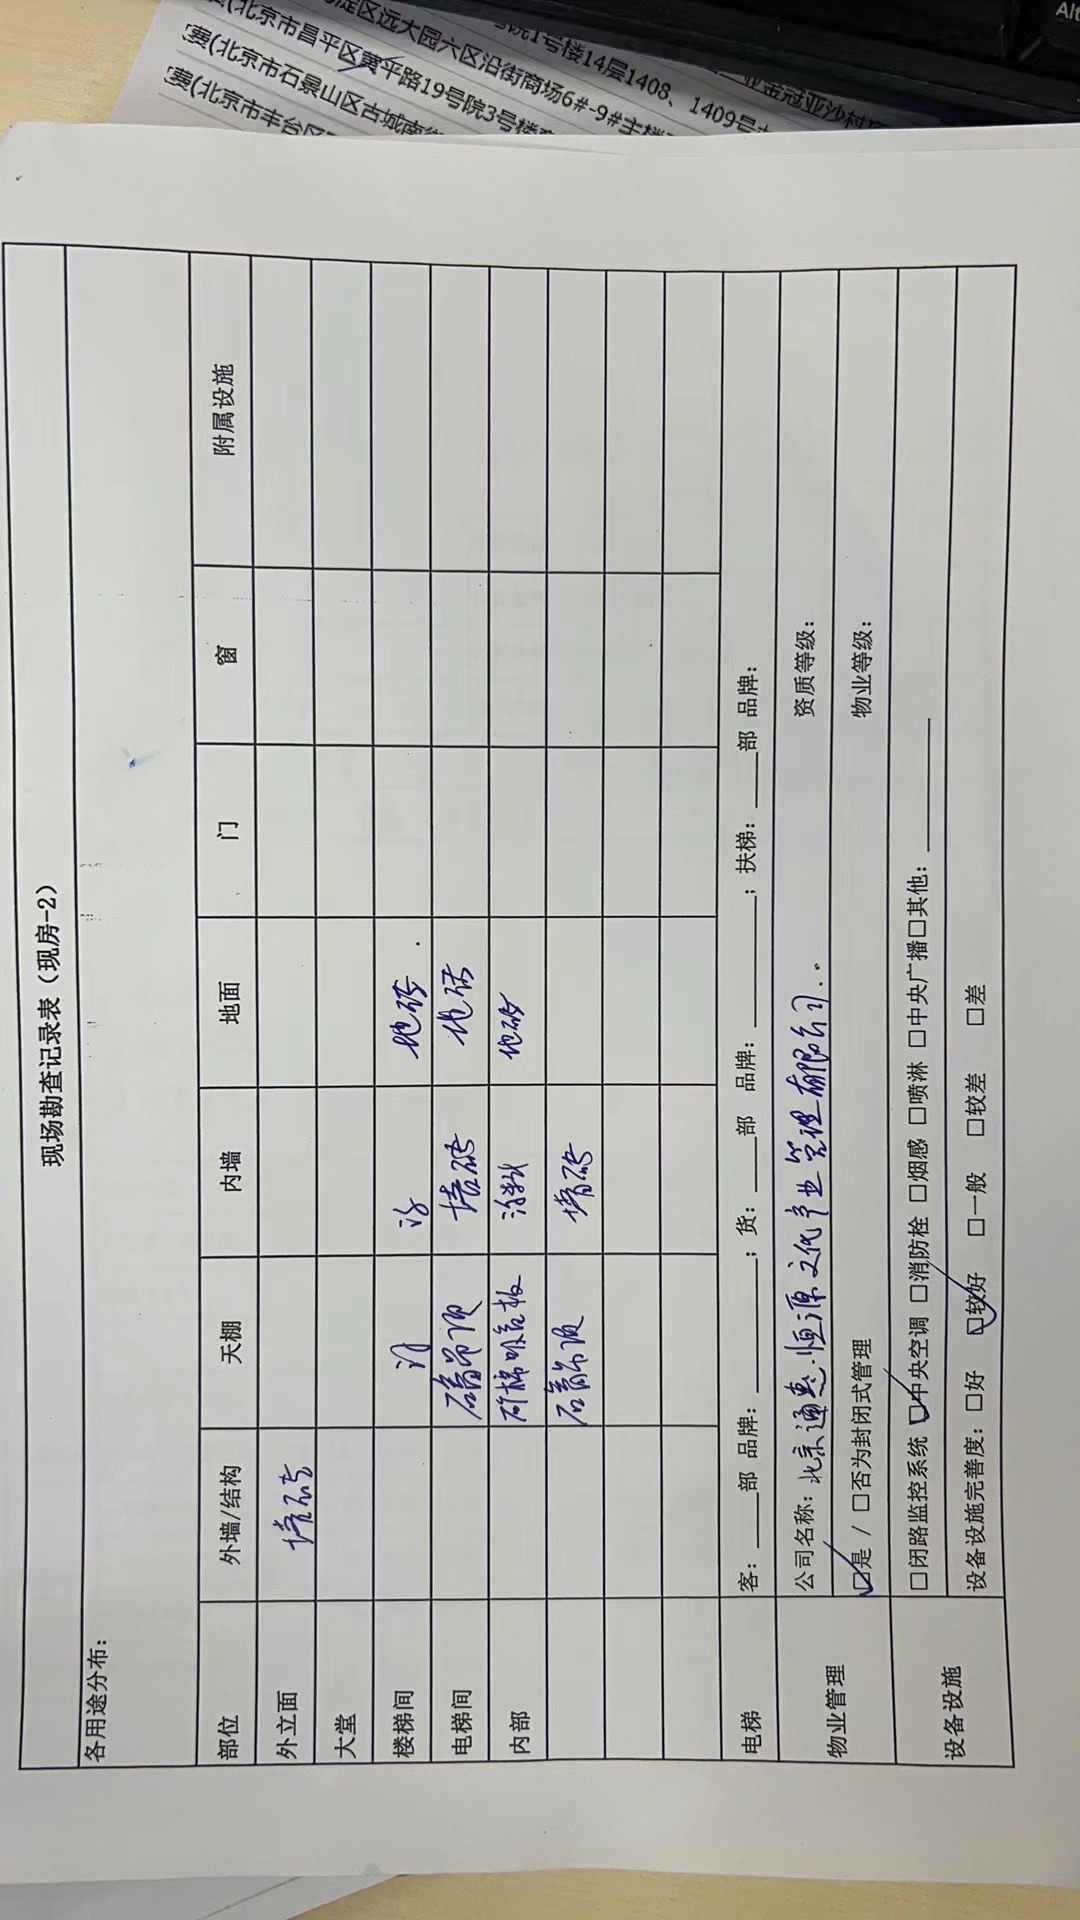 院1号楼14层1408、1409号
淀区远大园六区沿街商场6#-9#主楼
(北京市昌平区黄平路19号院3号楼
(北京市石景山区古城南街
(北京市丰台区
Alt
现场勘查记录表（现房-2）
各用途分布：
部位 外墙/结构 天棚 内墙 地面 门 窗 附属设施
外立面 墙砖
大堂
楼梯间 涂 涂 地砖
电梯间 石膏吊顶 墙砖 地砖
内部 矿棉吸音板 涂料 地砖
石膏吊顶 墙砖
电梯 客：____部 品牌：________；货：____部 品牌：________；扶梯：____部 品牌：
物业管理 公司名称：北京通惠恒源文化产业管理有限公司 资质等级：
☑是 / □否为封闭式管理 物业等级：
设备设施 □闭路监控系统 ☑中央空调 □消防栓 □烟感 □喷淋 □中央广播□其他：________
设备设施完善度：□好 ☑较好 □一般 □较差 □差